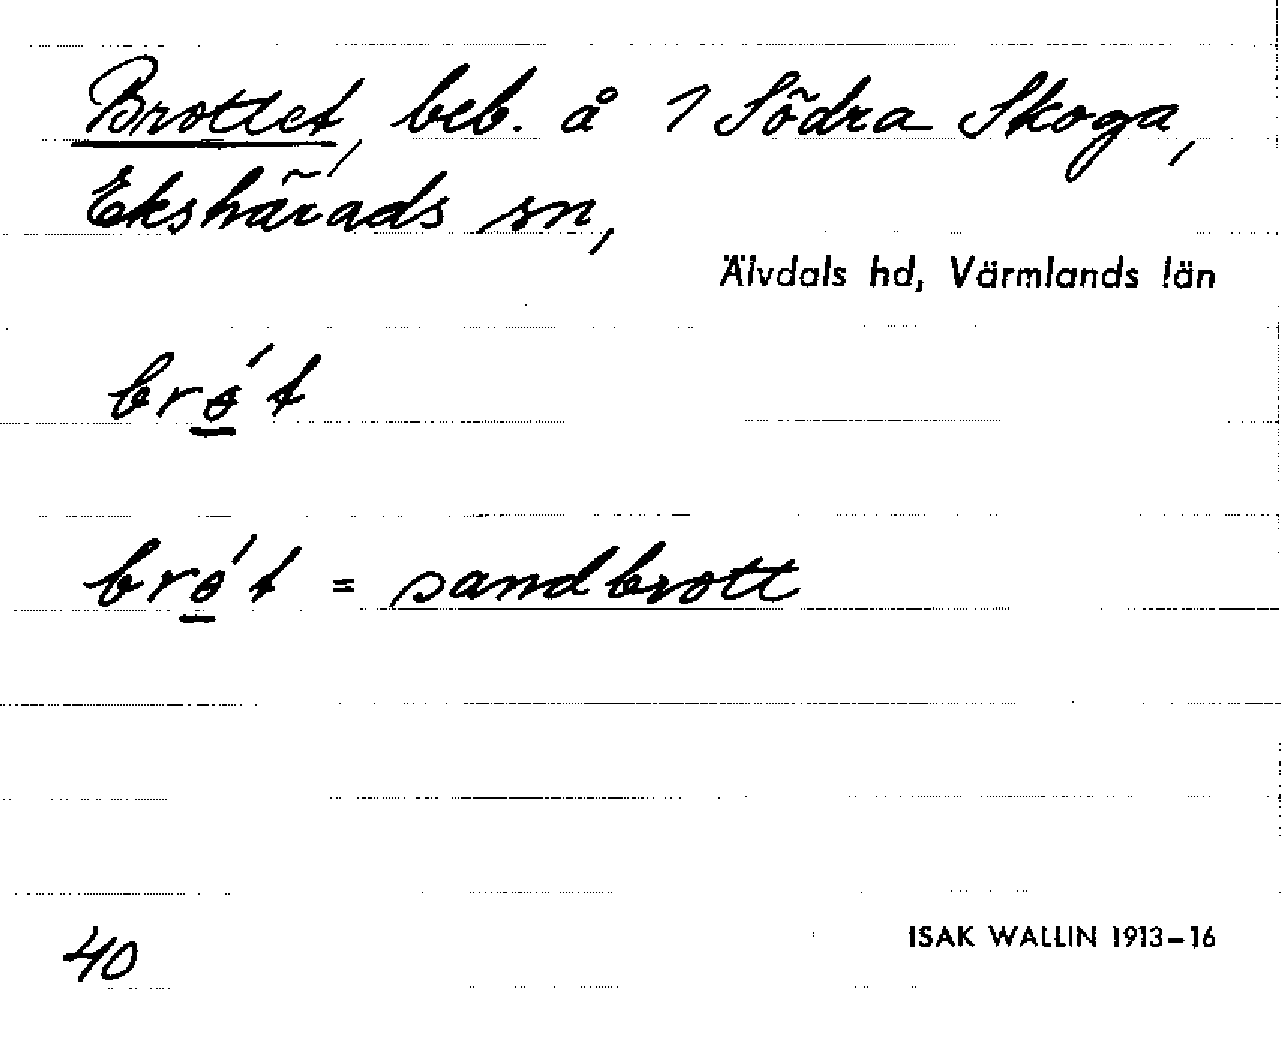 Brottet, beb. å 1 Södra Skoga,
Ekshärads sn,
Älvdals hd, Värmlands län
bró̲t
bró̲t = sandbrott
40
ISAK WALLIN 1913–16